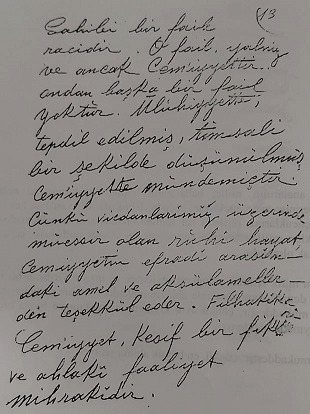 13
Sahibi bir fail
racidir. O fail, yalnız
ve ancak Cemiyyettir.
ondan başka bir fail
yoktur. Ulûhiyyette,
tepdil edilmiş, timsali
bir şekilde düşünülmüş
Cemiyyette mündemiçtir
Çünkü vicdanlarımız üzerinde
müessir olan ruhî hayat
Cemiyyetin efradi arasın-
daki amel ve aksülameller-
den teşekkül eder. Filhakika
Cemiyyet, Kesif bir fikrî
ve ahlakî faaliyet
mihrakidir.